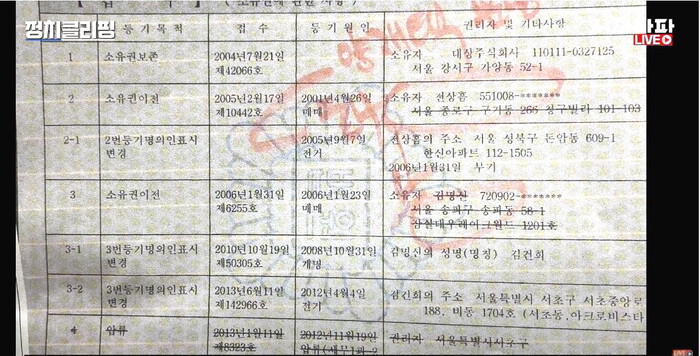 정치클리핑
파파
LIVE
등기목적 접수 등기원인 권리자 및 기타사항
1 소유권보존 2004년7월21일 소유자 대상주식회사 110111-0327125
제42066호 서울 강서구 가양동 52-1
2 소유권이전 2005년2월17일 2001년4월26일 소유자 전상흠 551008-*******
제10442호 매매 서울 종로구 구기동 266 청구빌라 101-103
2-1 2번등기명의인표시 2005년9월7일 전상흠의 주소 서울 성북구 돈암동 609-1
변경 전거 한신아파트 112-1505
2006년1월31일 부기
3 소유권이전 2006년1월31일 2006년1월23일 소유자 김명신 720902-*******
제6255호 매매 서울 송파구 송파동 58-1
잠실대우레이크월드 1201호
3-1 3번등기명의인표시 2010년10월19일 2008년10월31일 김명신의 성명(명칭) 김건희
변경 제50305호 개명
3-2 3번등기명의인표시 2013년6월11일 2012년4월4일 김건희의 주소 서울특별시 서초구 서초중앙로
변경 제142966호 전거 188, 비동 1704호 (서초동,아크로비스타
4 압류 2013년1월11일 2012년11월19일 권리자 서울특별시서초구
제8323호 압류(세무1과-2
LIVE